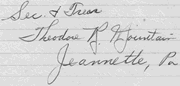 Sec. & Treas
Theodore R. Mountain
Jeannette, Pa